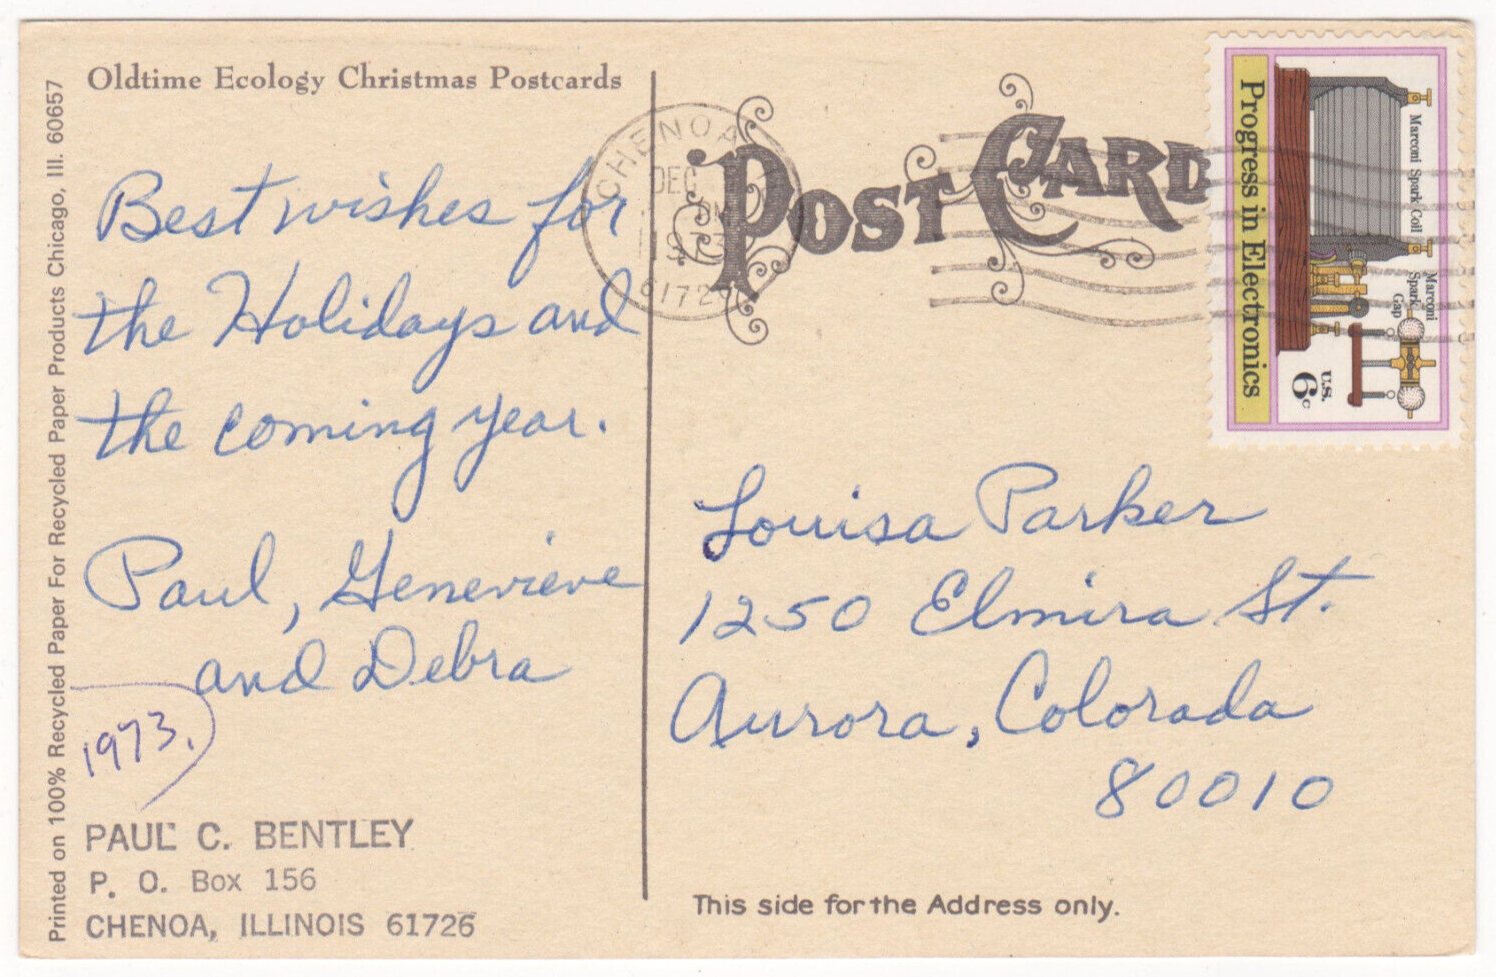 Oldtime Ecology Christmas Postcards
Best wishes for
the Holidays and
the coming year.
Paul, Genevieve
and Debra
1973.
PAUL C. BENTLEY
P. O. Box 156
CHENOA, ILLINOIS 61726
Printed on 100% Recycled Paper For Recycled Paper Products Chicago, Ill. 60657
CHENOA
DEC
PM
1973
61726
POST CARD
Progress in Electronics
Marconi Spark Coil
Marconi
Spark
Gap
U.S.
6c
Louisa Parker
1250 Elmira St.
Aurora, Colorada
80010
This side for the Address only.